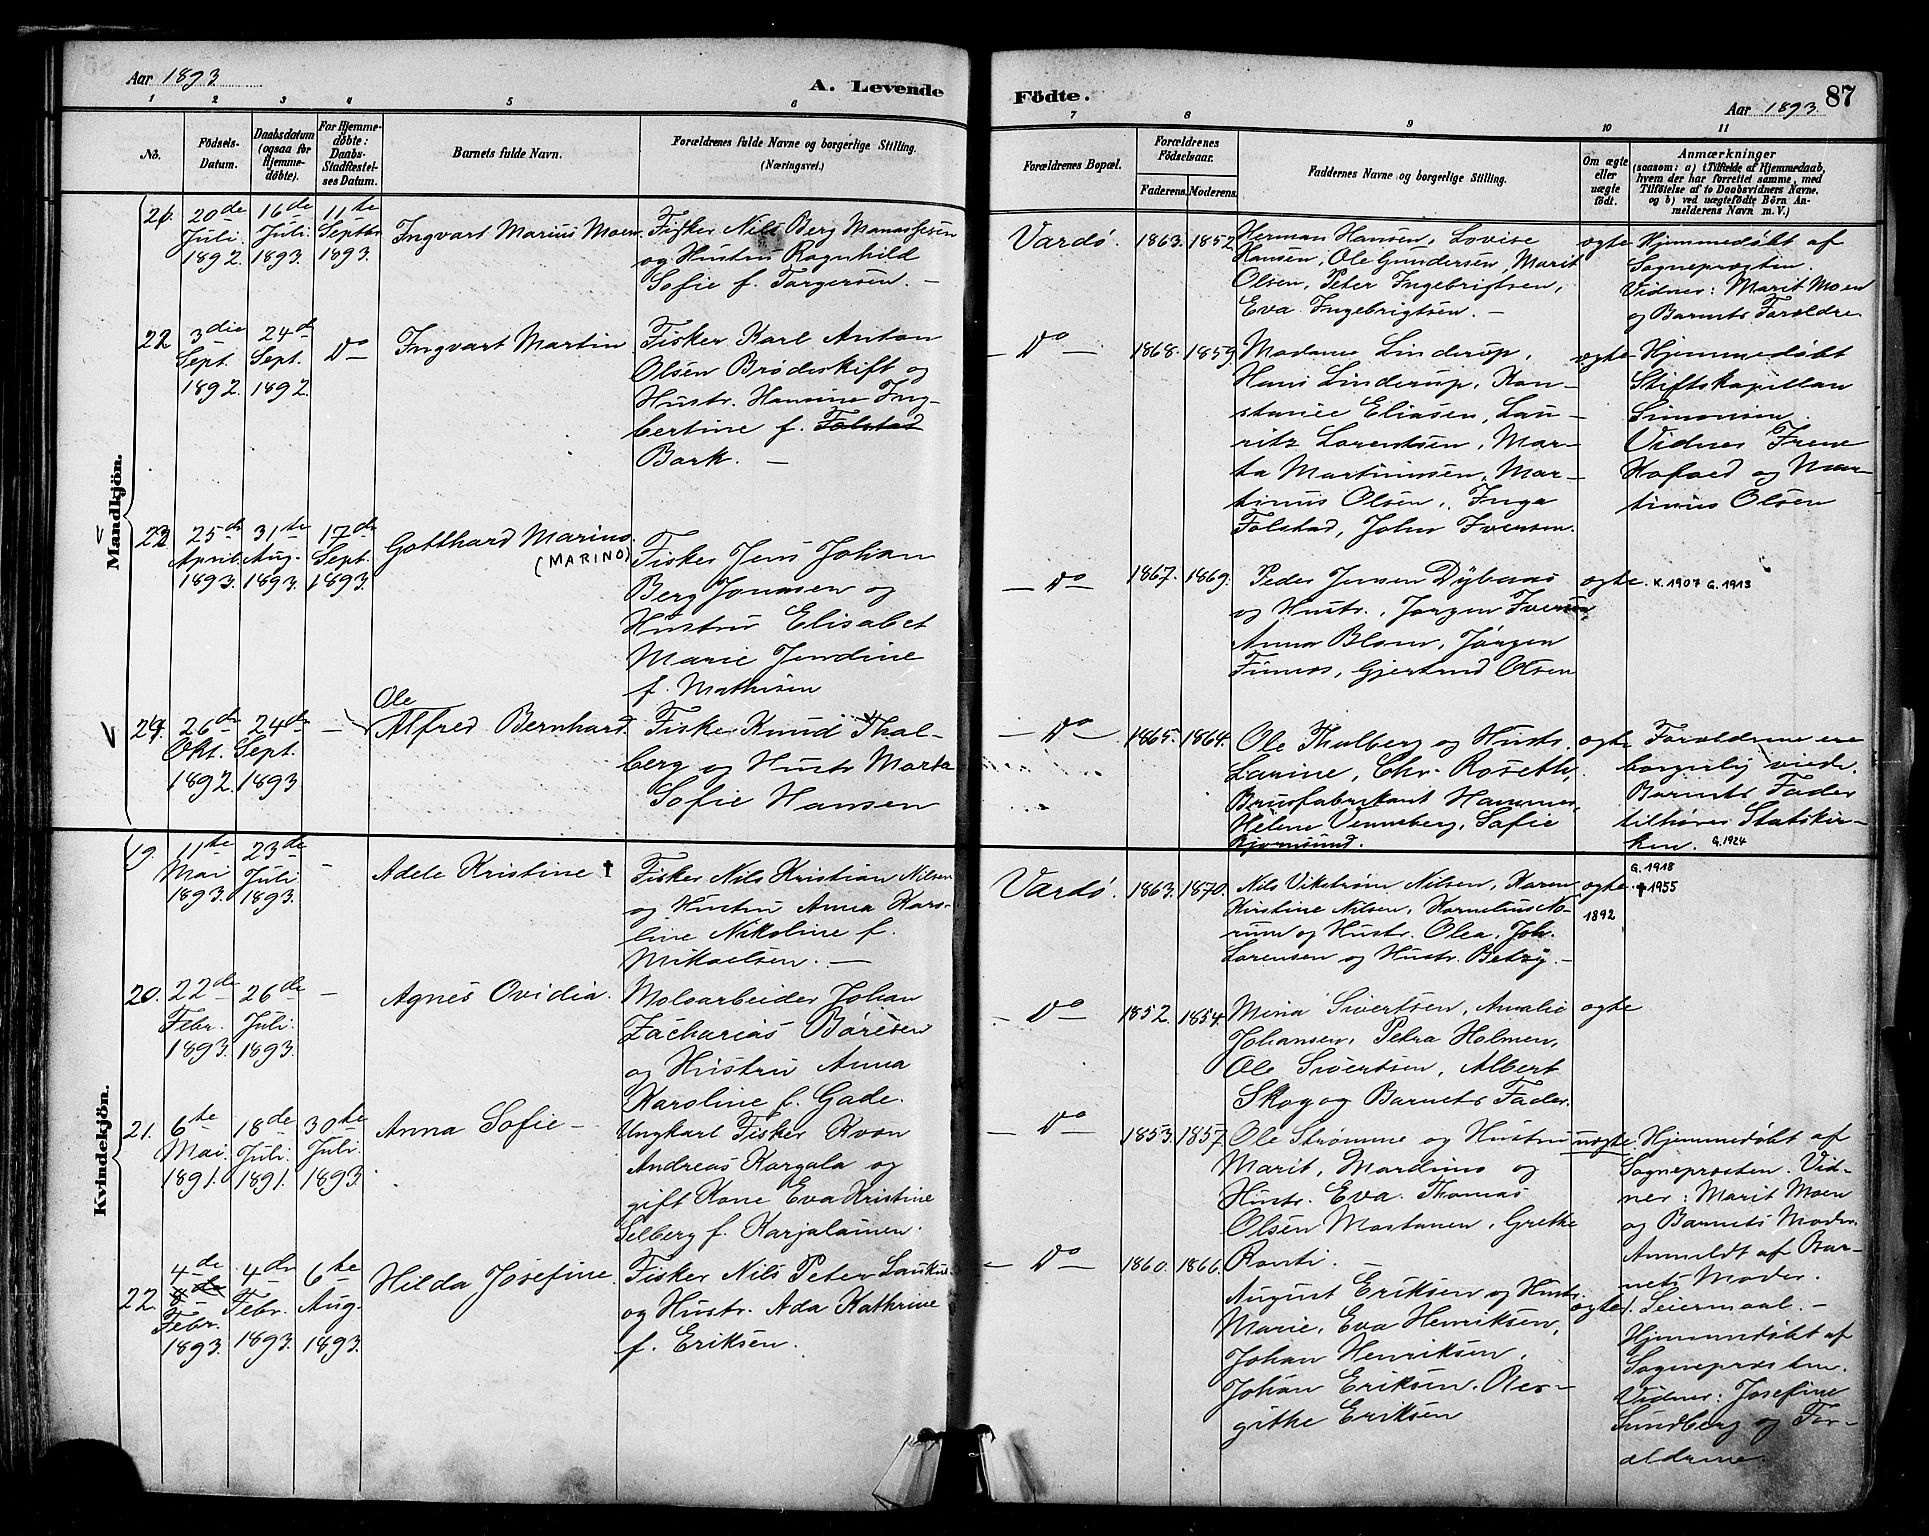 Aar 1893
A. Levende
1 2 3 4 5 6
No.
Födsels-
Datum.
Daabsdatum
(ogsaa for
Hjemme-
döbte).
For Hjemme-
döbte:
Daabs-
Stadfæstel-
ses Datum.
Barnets fulde Navn.
Forældrenes fulde Navne og borgerlige Stilling.
(Næringsvei.)
Mandkjön.
21.
20de
Juli
1892.
16de
Juli
1893.
11te
Septbr
1893.
Ingvart Marius Moen
Fisker Nils Berg Manassesen
og Hustru Ragnhild
Sofie f. Torgersen. —
22
3die
Sept.
1892.
24d
Sept.
1892.
Do
Ingvart Martin
Fisker Karl Anton
Olsen Brødeskift og
Hustr. Hansine Ing-
bertine f. Folstad
Bark. —
23
25de
April
1893.
31te
Aug.
1893.
17de
Sept.
1893.
Gotthard Marino.
(MARINO)
Fisker Jens Johan
Berg Jonasen og
Hustru Elisabet
Marie Jendine
f. Mathisen
24.
26de
Okt.
1892.
24de
Sept.
1893
—
Ole
Alfred Bernhard
Fisker Knud Thal-
berg og Hustr Marta
Sofie Hansen
Kvindekjön.
19.
11te
Mai
1893.
23de
Juli
1893.
-
Adele Kristine †
Fisker Nils Kristian Nilsen
og Hustru Anna Karo-
line Nikoline f.
Mikaelsen. —
20.
22de
Febr.
1893.
26de
Juli
1893.
—
Agnes Ovidia.
Moloarbeider Johan
Zacharias Børesen
og Hustru Anna
Karoline f. Gade.
21.
6te
Mai
1891.
18de
Juli
1891.
30te
Juli
1893.
Anna Sofie —
Ungkarl Fisker Kvæn
Andreas Kargala og
gift Kone Eva Kristine
Selberg f. Karjalainen.
22.
4de
8de
Febr.
1893.
4de
Febr.
1893.
6te
Aug.
1893.
Hilda Josefine.
Fisker Nils Peter
og Hustr. Ada Kathrine
f. Eriksen.
Födte.
87
Aar 1893.
7 8 9 10 11
Forældrenes Bopæl.
Forældrenes
Födselsaar.
Faderens. Moderens.
Faddernes Navne og borgerlige Stilling.
Om ægte
eller
uægte
födt.
Anmærkninger
(saasom: a) i Tilfælde af Hjemmedaab,
hvem der har forrettet samme, med
Tilföielse af to Daabsvidners Navne.
og b) ved uægtefödte Börn An-
melderens Navn m. V.)
Vardø.
1863. 1852.
Herman Hansen, Lovise
Hansen, Ole Gundersen, Marit
Olsen, Peter Ingebrigtsen,
Eva Ingebrigtsen. —
ægte
Hjemmedøbt af
Sognepræsten.
Vidner: Marit Moen
og Barnets Forældre.
— Do —
1868. 1859.
Madame Linderup,
Hans Linderup, Kon-
stanse Eliasen, Lau-
ritz Lorentsen, Mar-
ta Martinusen, Mar-
tinus Olsen, Inga
Folstad, Johs Iversen.
ægte
Hjemmedøbt
Stiftskapellan
Simonsen.
Vidner Irene
Hofoed og Mar-
tinus Olsen
— Do —
1867. 1869.
Peder Jensen Dybaas
og Hustr., Jørgen Iversen
Anna Blom, Jørgen
Gjertrud Olsen
ægte. K.1907 G.1913
— Do —
1865. 1864.
Ole Thalberg og Hustr.
Larine, Chr. Roseth,
Brusfabrikant Hammer,
Helene Venneberg, Sofie
Bjørnsund.
ægte
Forældrene ere
borgerlig viede.
Barnets Fader
tilhører Statskir-
ken. G.1924
Vardø.
1863. 1870.
Nils Vikstrøm Nilsen, Karen
Kirstine Nilsen, Kornelius No-
rum og Hustr. Olea, Joh.
Lorensen og Hustr. Betsy. —
ægte.
1892
G.1918
†1955
— Do —
1852. 1854.
Mina Sivertsen, Amalie
Johansen, Petra Holmen,
Ole Sivertsen, Albert
Skog og Barnets Fader.
ægte
— Do —
1853. 1857.
Ole Strømme og Hustru
Marit, Mardinus og
Hustr. Eva. Thomas
Olsen Mostanen, Grethe
Ranti. —
uægte.
Hjemmedøbt af
Sognepræsten. Vid-
ner: Marit Moen
og Barnets Moder.
Anmeldt af Bar-
nets Moder.
— Do —
1860. 1866.
August Eriksen og Hustr.
Marie, Eva Henriksen,
Johan Henriksen,
Johan Eriksen. Ber-
githe Eriksen
ægte
Hjemmedøbt af
Sognepræsten.
Vidner: Josefine
Sundberg og For-
ældrene.